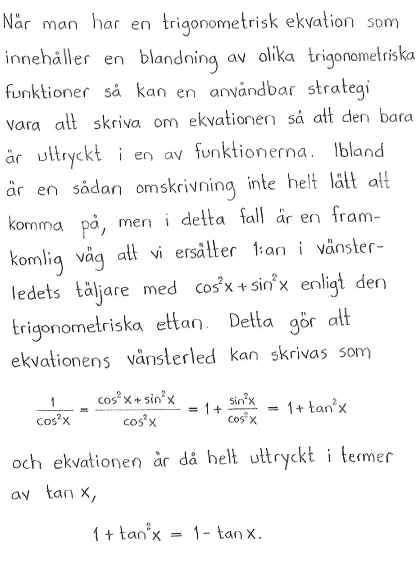 När man har en trigonometrisk ekvation som
innehåller en blandning av olika trigonometriska
funktioner så kan en användbar strategi
vara att skriva om ekvationen så att den bara
är uttryckt i en av funktionerna. Ibland
är en sådan omskrivning inte helt lätt att
komma på, men i detta fall är en fram-
komlig väg att vi ersätter 1:an i vänster-
ledets täljare med cos²x + sin²x enligt den
trigonometriska ettan. Detta gör att
ekvationens vänsterled kan skrivas som
1/cos²x = (cos²x + sin²x)/cos²x = 1 + sin²x/cos²x = 1 + tan²x
och ekvationen är då helt uttryckt i termer
av tan x,
1 + tan²x = 1 - tan x.